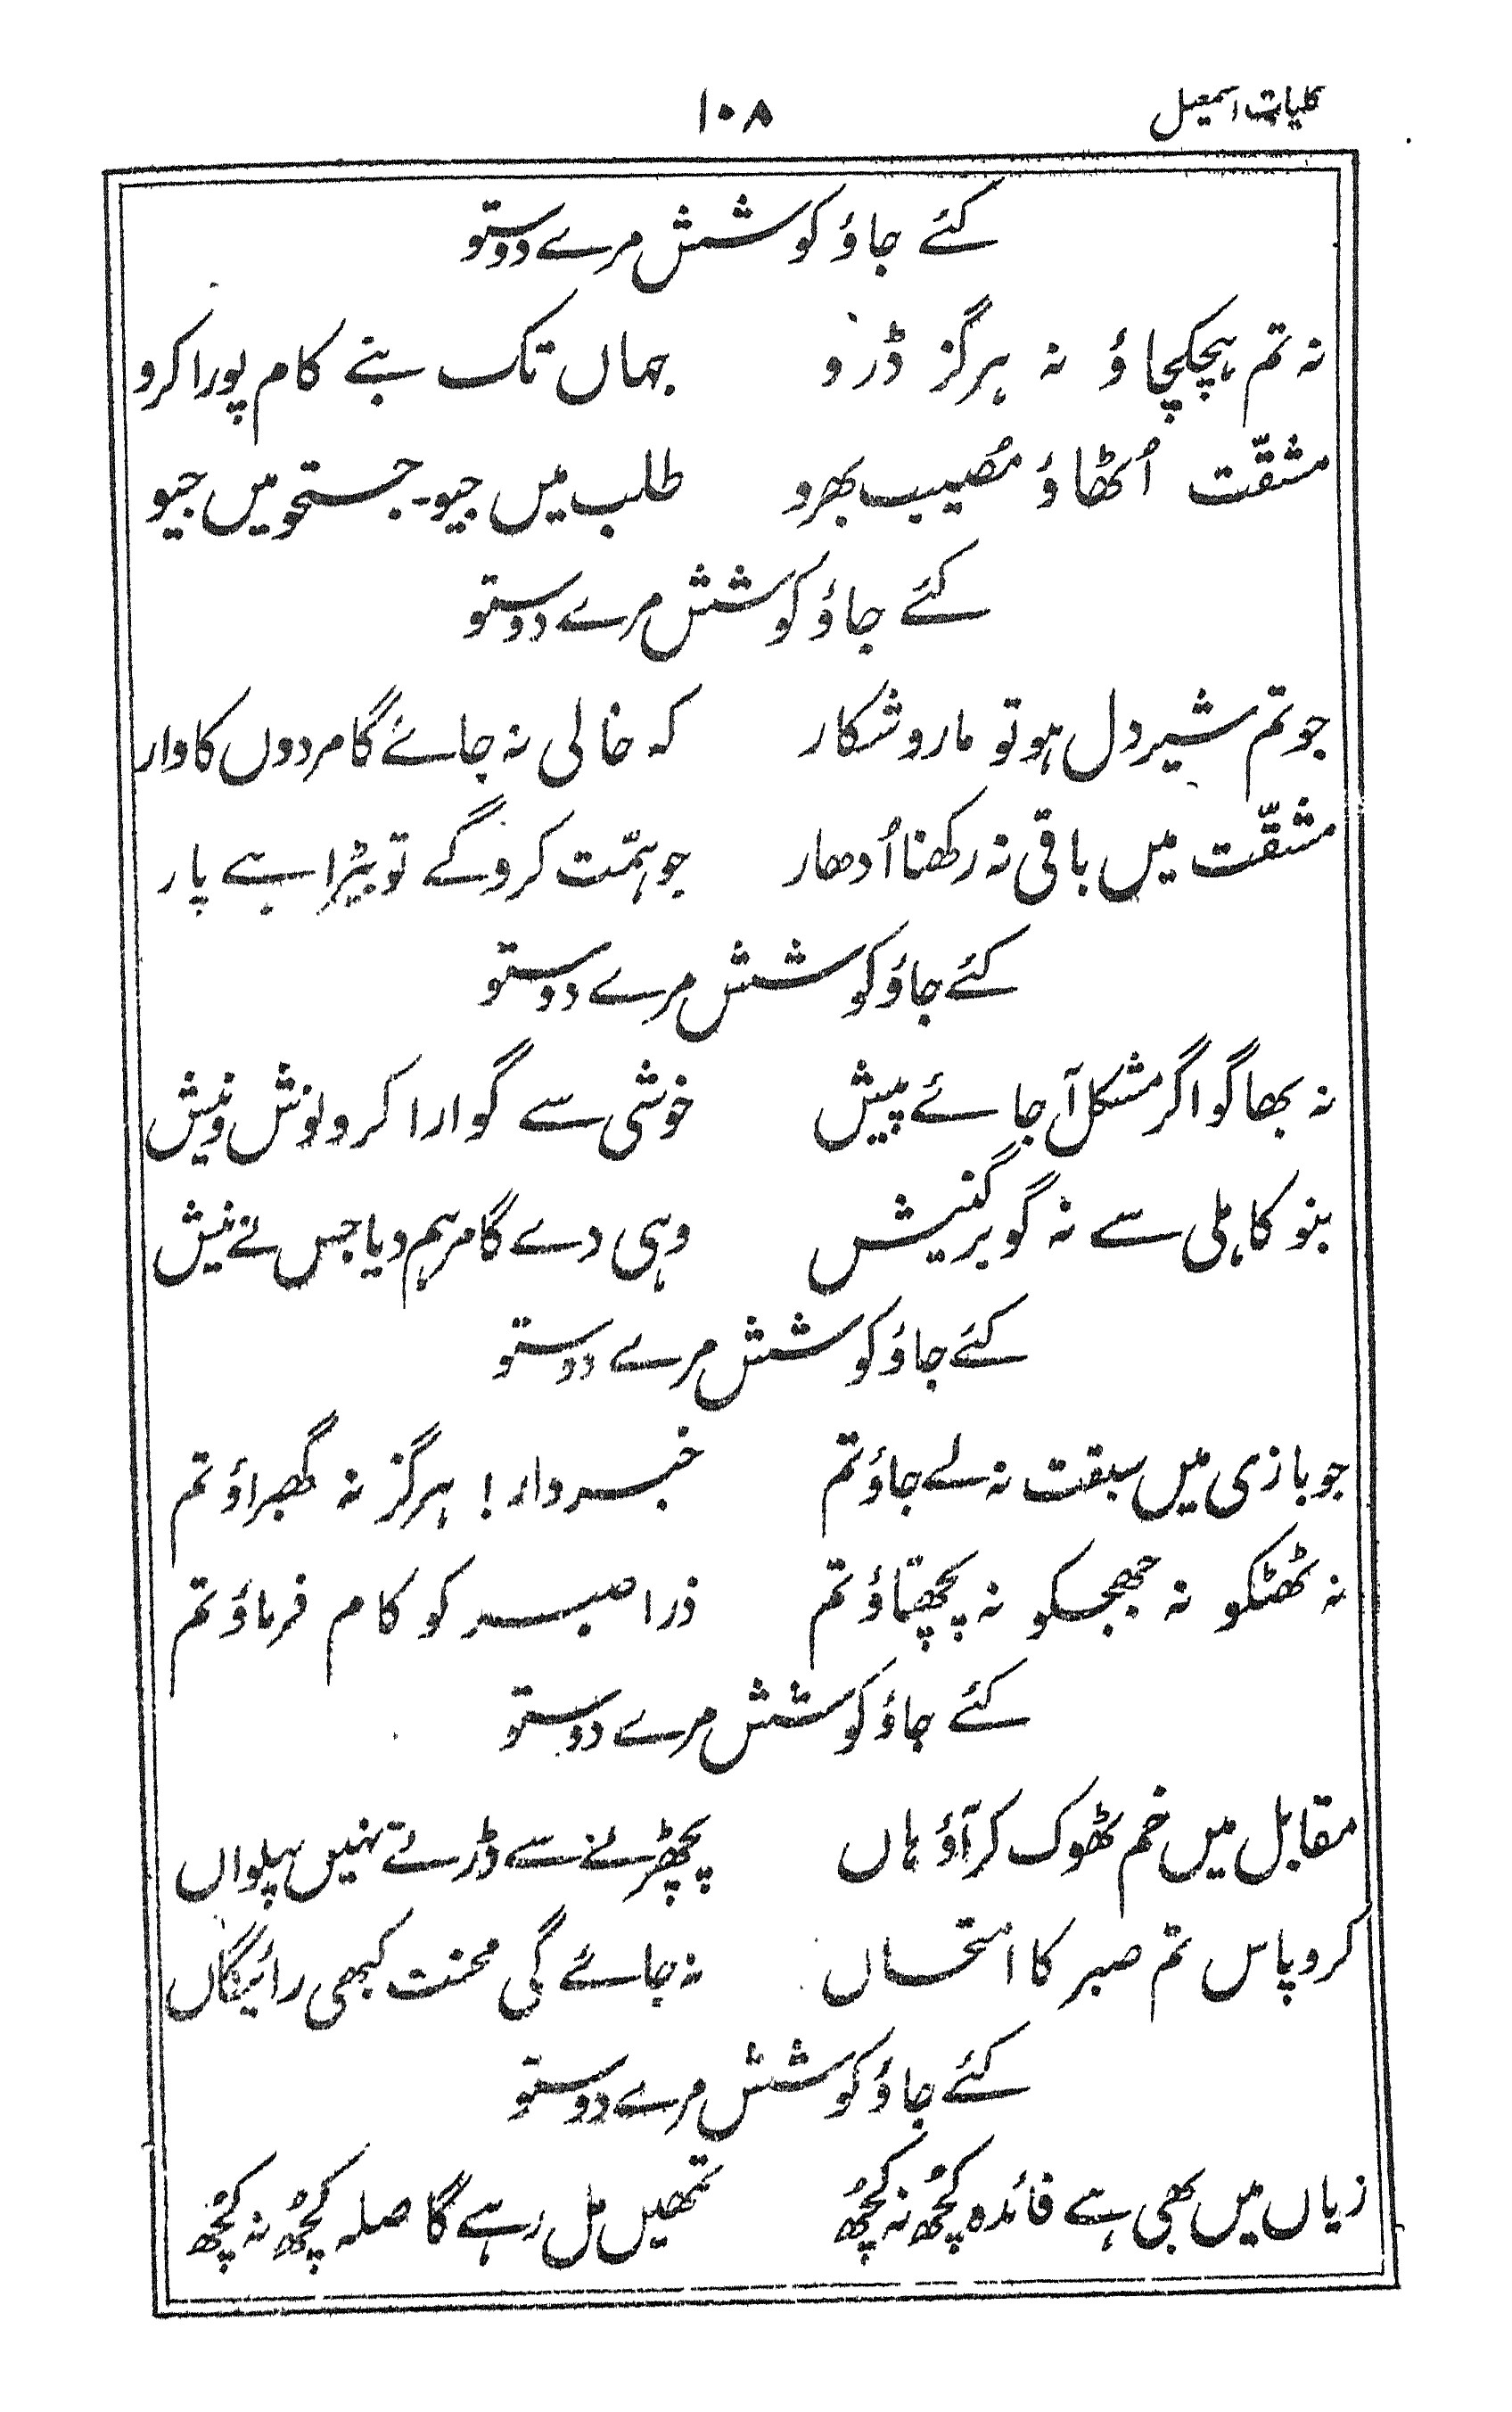 کلیات اسمعیل ۱۰۸
کئے جاؤ کوشش مرے دوستو
نہ تم ہچکچاؤ نہ ہرگز ڈرو جہاں تک بنے کام پورا کرو
مشقّت اُٹھاؤ مُصیبت بھرو طلب میں جیو۔ جستجو میں جیو
کئے جاؤ کوشش مرے دوستو
جو تم شیر دل ہو تو مارو شکار کہ خالی نہ جائے گا مردوں کا وار
مشقّت میں باقی نہ رکھنا اُدھار جو ہمّت کرو گے تو بیڑا ہے پار
کئے جاؤ کوشش مرے دوستو
نہ بھاگو اگر مشکل آ جائے پیش خوشی سے گوارا کرو نوش و نیش
بنو کاہلی سے نہ گوبر گنیش وہی دے گا مرہم دیا جس نے نیش
کئے جاؤ کوشش مرے دوستو
جو بازی میں سبقت نہ لے جاؤ تم خبردار! ہرگز نہ گھبراؤ تم
نہ ٹھٹکو نہ جھجکو نہ پچھتاؤ تم ذرا صبر کو کام فرماؤ تم
کئے جاؤ کوشش مرے دوستو
مقابل میں خم ٹھوک کر آؤ ہاں پچھڑنے سے ڈرتے نہیں پہلواں
کرو پاس تم صبر کا امتحاں نہ جائے گی محنت کبھی رائیگاں
کئے جاؤ کوشش مرے دوستو
زیاں میں بھی ہے فائدہ کُچھ نہ کُچھ تمھیں مل رہے گا صلہ کُچھ نہ کُچھ